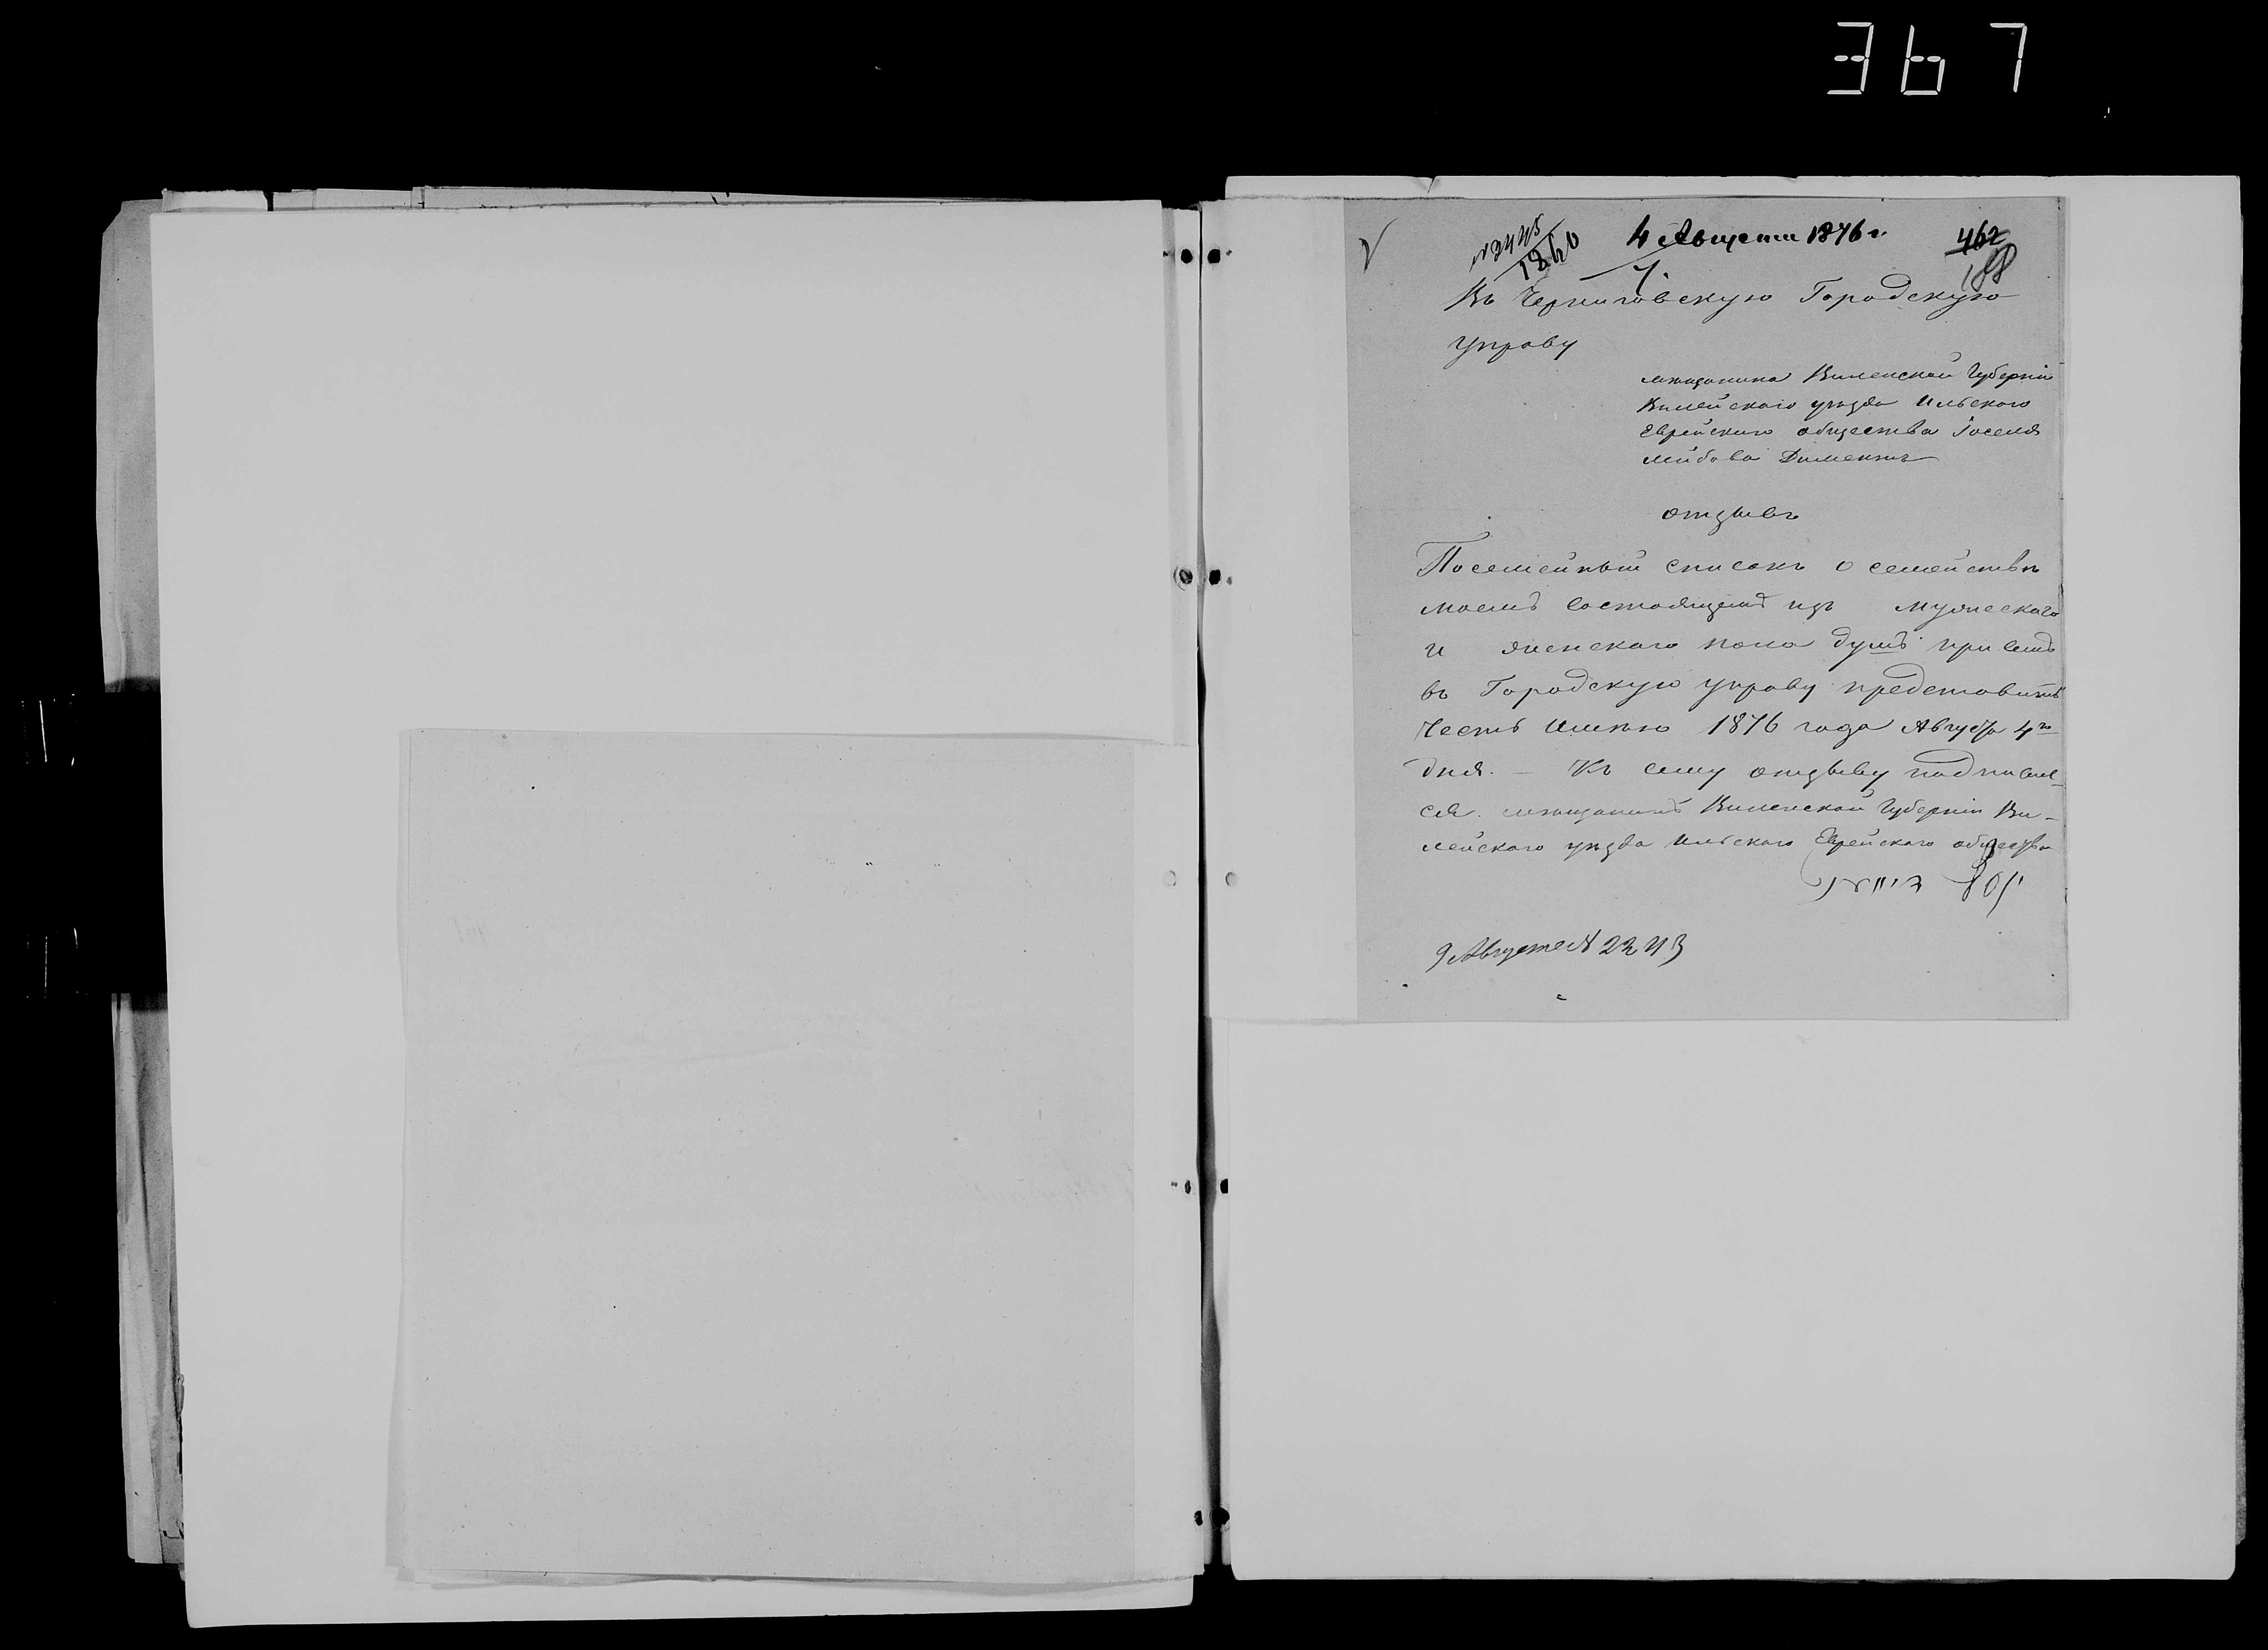 367
4 Августа 1876 г.
462
188
Въ Черниговскую Городскую
Управу
мѣщанина Виленской Губерніи
Вилейскаго уѣзда Ильскаго
Еврейскаго общества Іоселя
Лейбова Диментъ
отзывъ
Посемейный списокъ о семействѣ
моемъ состоящемъ изъ мужескаго
и женскаго пола душъ при семъ
въ Городскую управу представить
Честь Имѣю 1876 года Августа 4го
дня. — Къ сему отзыву подписал-
ся. мѣщанинъ Виленской Губерніи Ви-
лейскаго уѣзда Ильскаго Еврейскаго общества
9 Августа № 2243